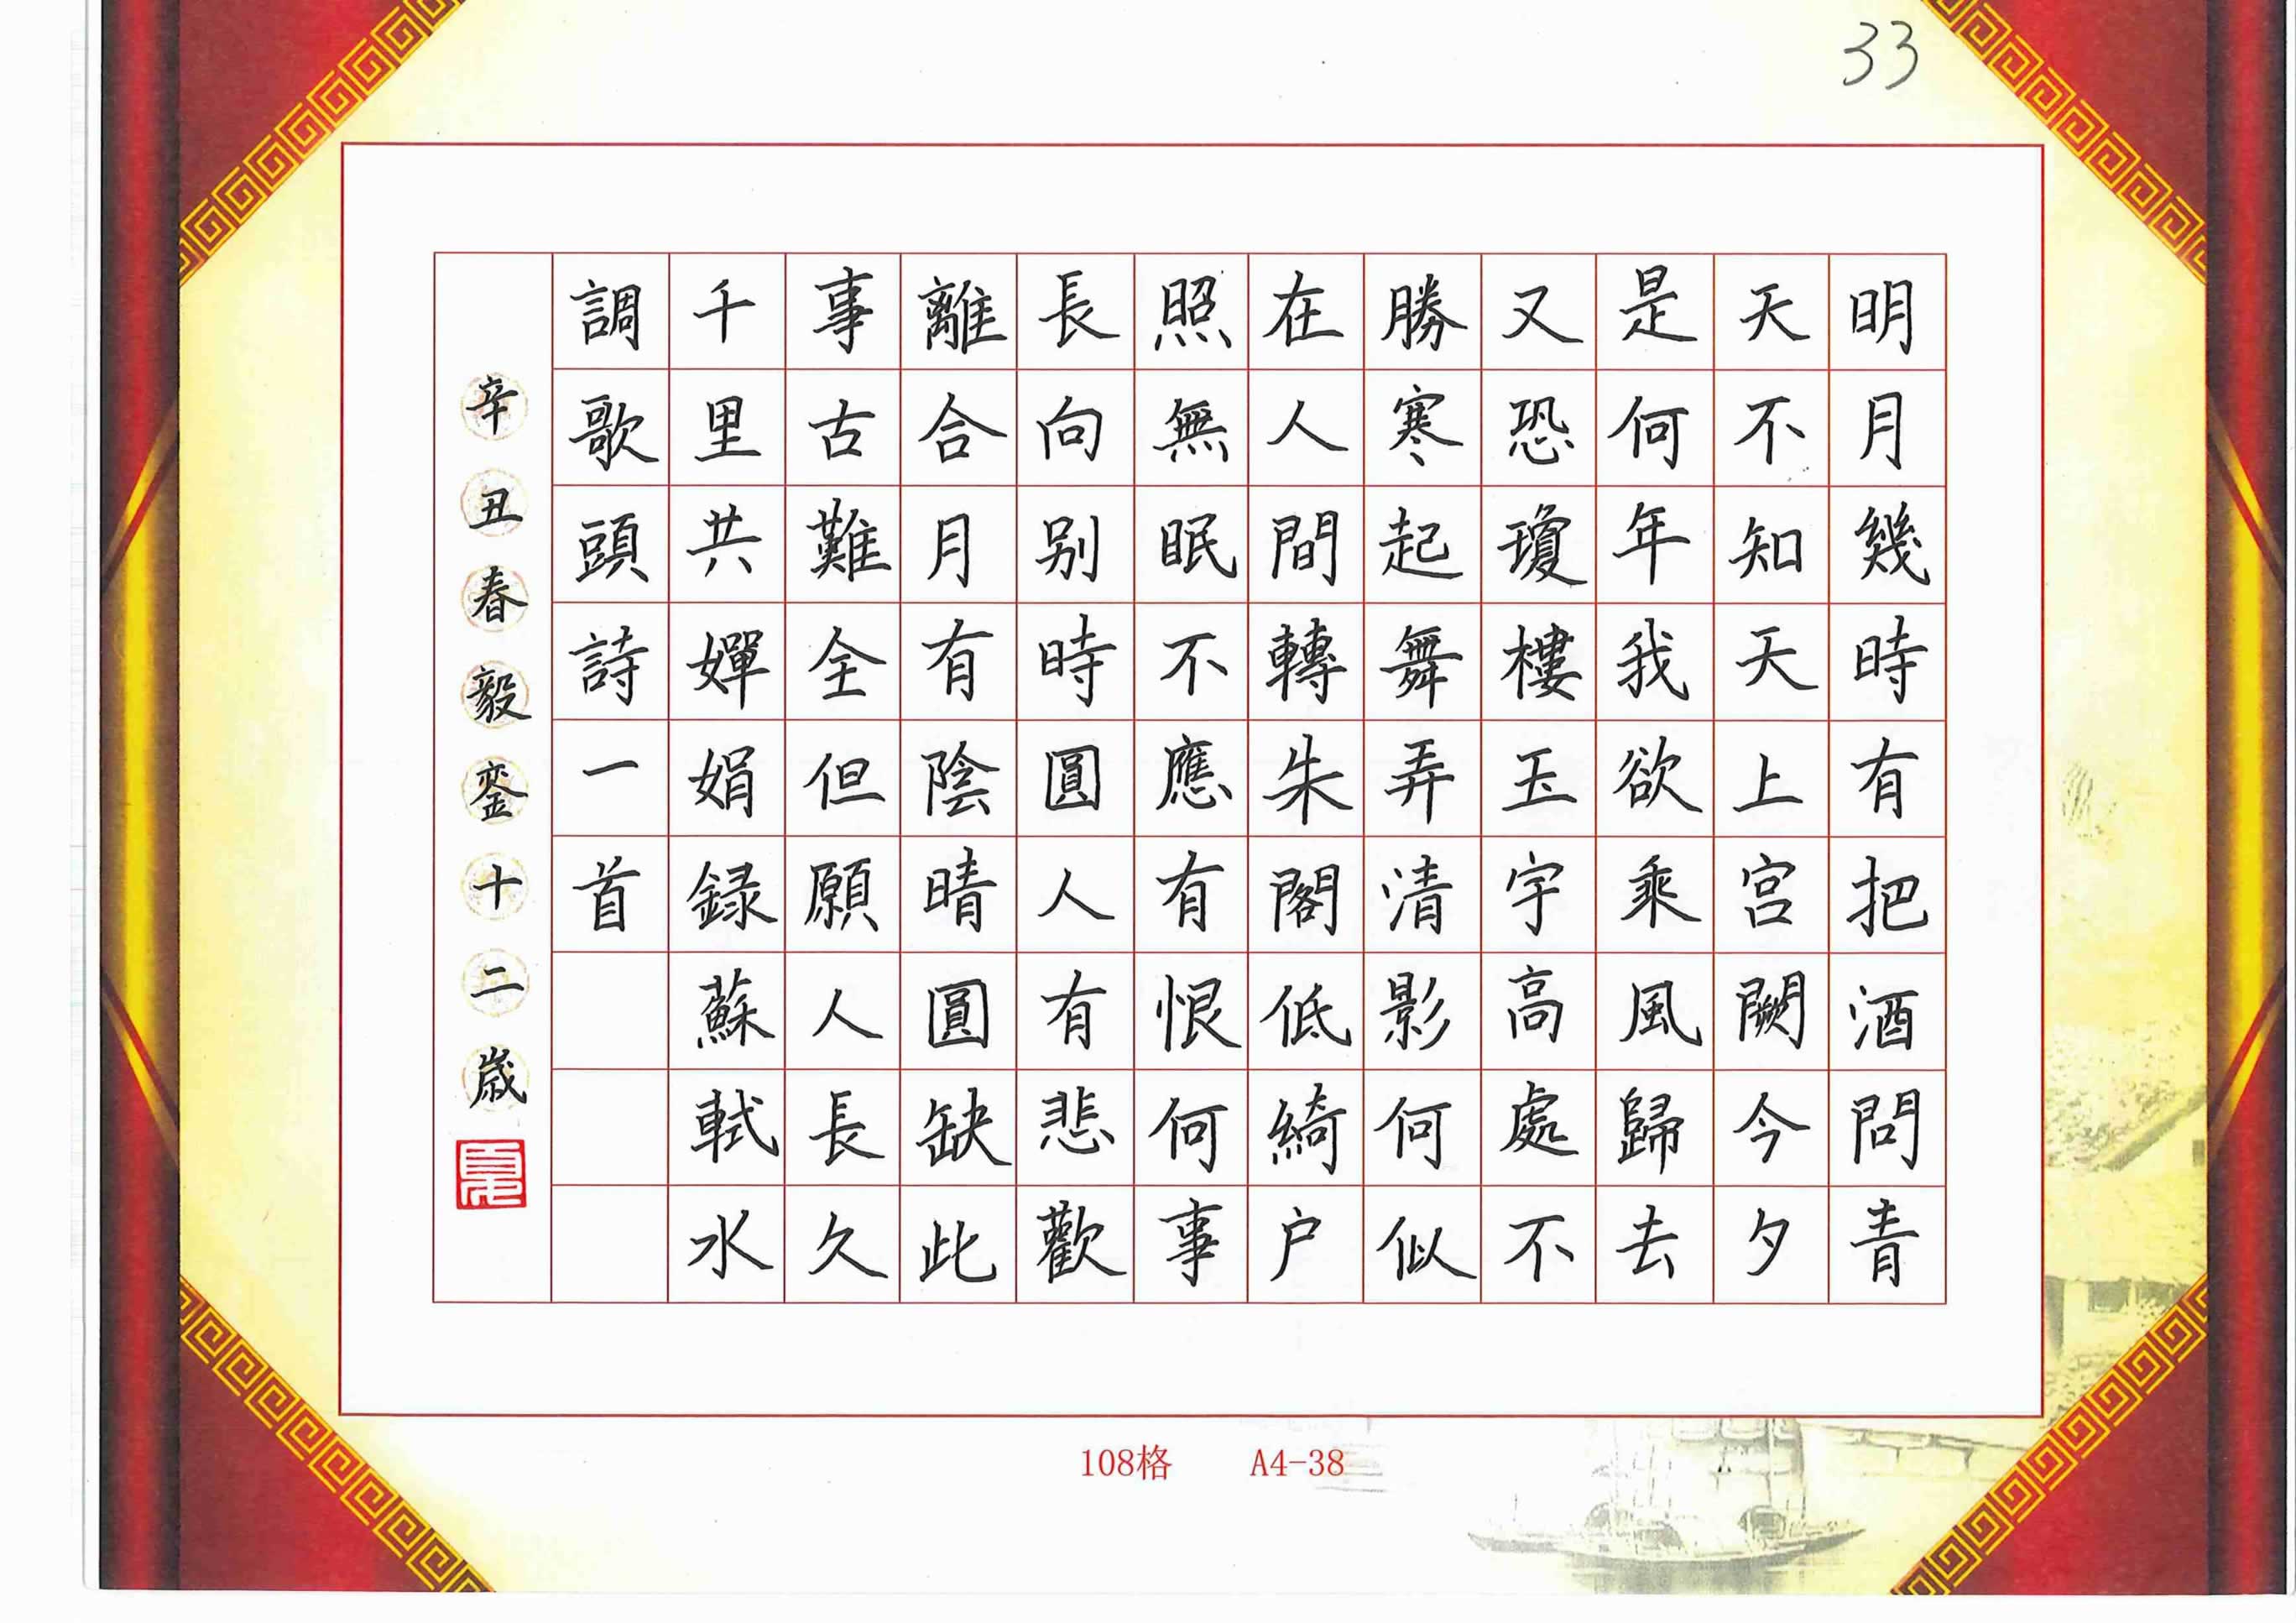 33
明月幾時有把酒問青
天不知天上宫闕今夕
是何年我欲乘風歸去
又恐瓊樓玉宇高處不
勝寒起舞弄清影何似
在人間轉朱閣低綺户
照無眠不應有恨何事
長向别時圓人有悲歡
離合月有陰晴圓缺此
事古難全但願人長久
千里共嬋娟録蘇軾水
調歌頭詩一首
辛丑春毅銮十二歲
108格 A4-38